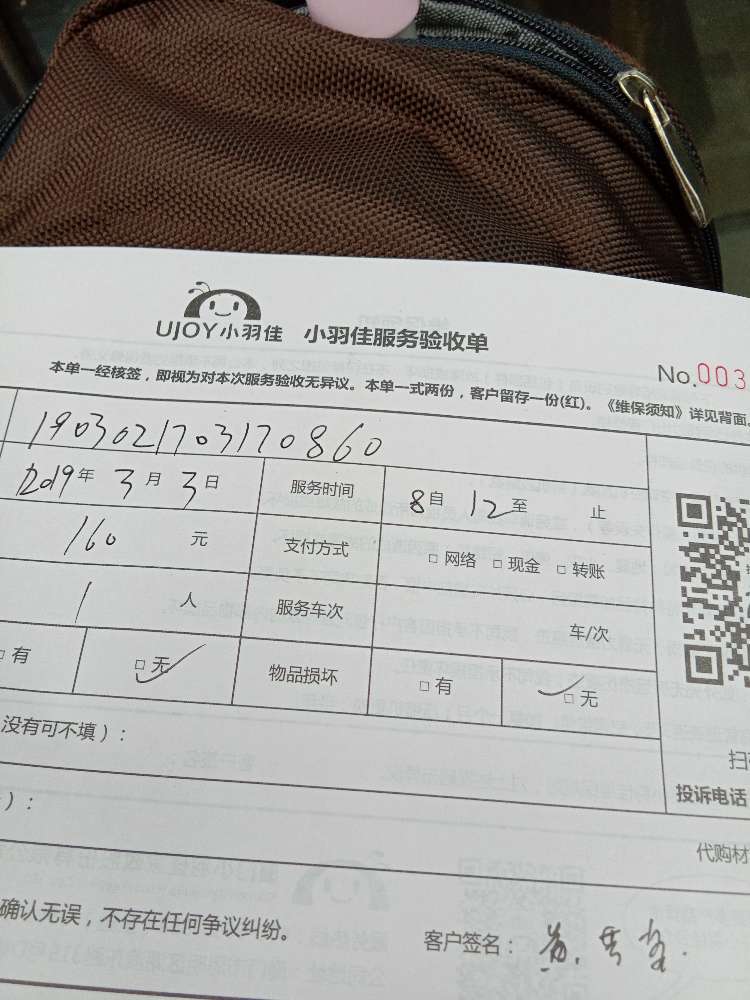 UJOY小羽佳 小羽佳服务验收单
No.003
本单一经核签，即视为对本次服务验收无异议。本单一式两份，客户留存一份(红)。《维保须知》详见背面。
1903021703170860
2019年 3月 3日 服务时间 8自 12至 止
160 元 支付方式 □ 网络 □ 现金 □ 转账
1 人 服务车次 车/次
□ 有 □ 无 物品损坏 □ 有 □ 无
没有可不填）：
扫
投诉电话
）：
代购材
确认无误，不存在任何争议纠纷。
客户签名：